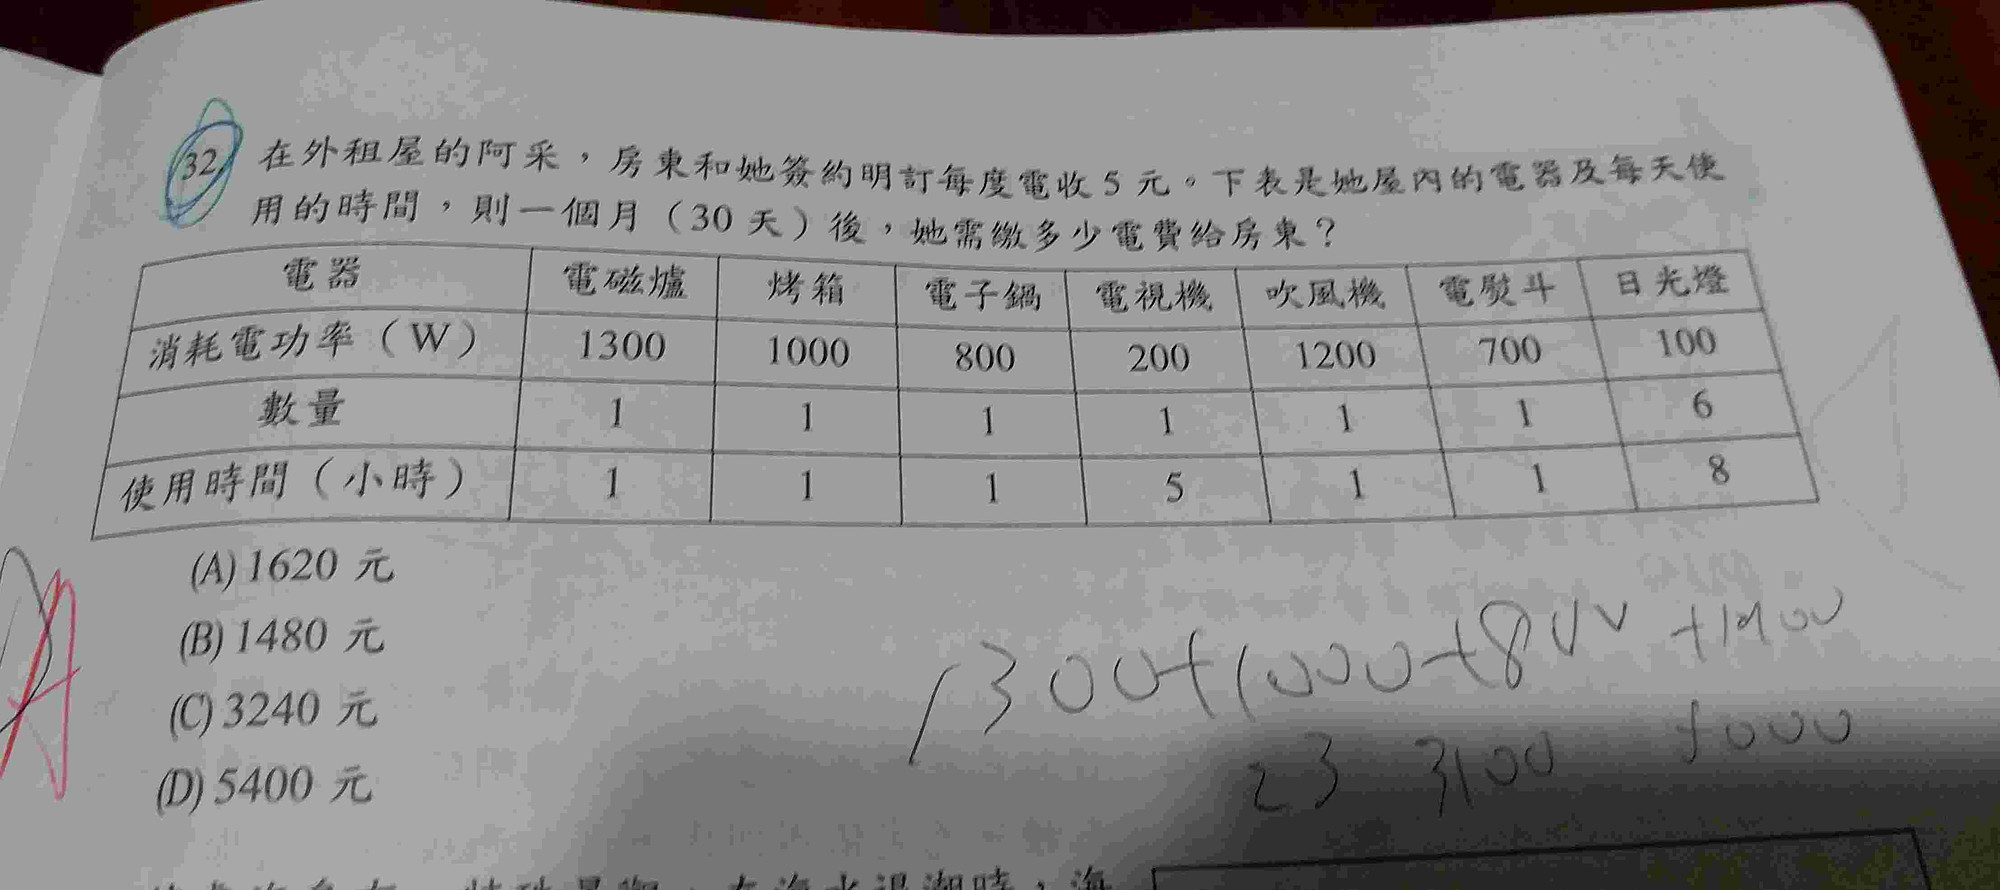 32. 在外租屋的阿采，房東和她簽約明訂每度電收5元。下表是她屋內的電器及每天使
用的時間，則一個月（30天）後，她需繳多少電費給房東？
電器 電磁爐 烤箱 電子鍋 電視機 吹風機 電熨斗 日光燈
消耗電功率（W） 1300 1000 800 200 1200 700 100
數量 1 1 1 1 1 1 6
使用時間（小時） 1 1 1 5 1 1 8
(A) 1620 元
(B) 1480 元
(C) 3240 元
(D) 5400 元
A
1300+1000+800
23 3100